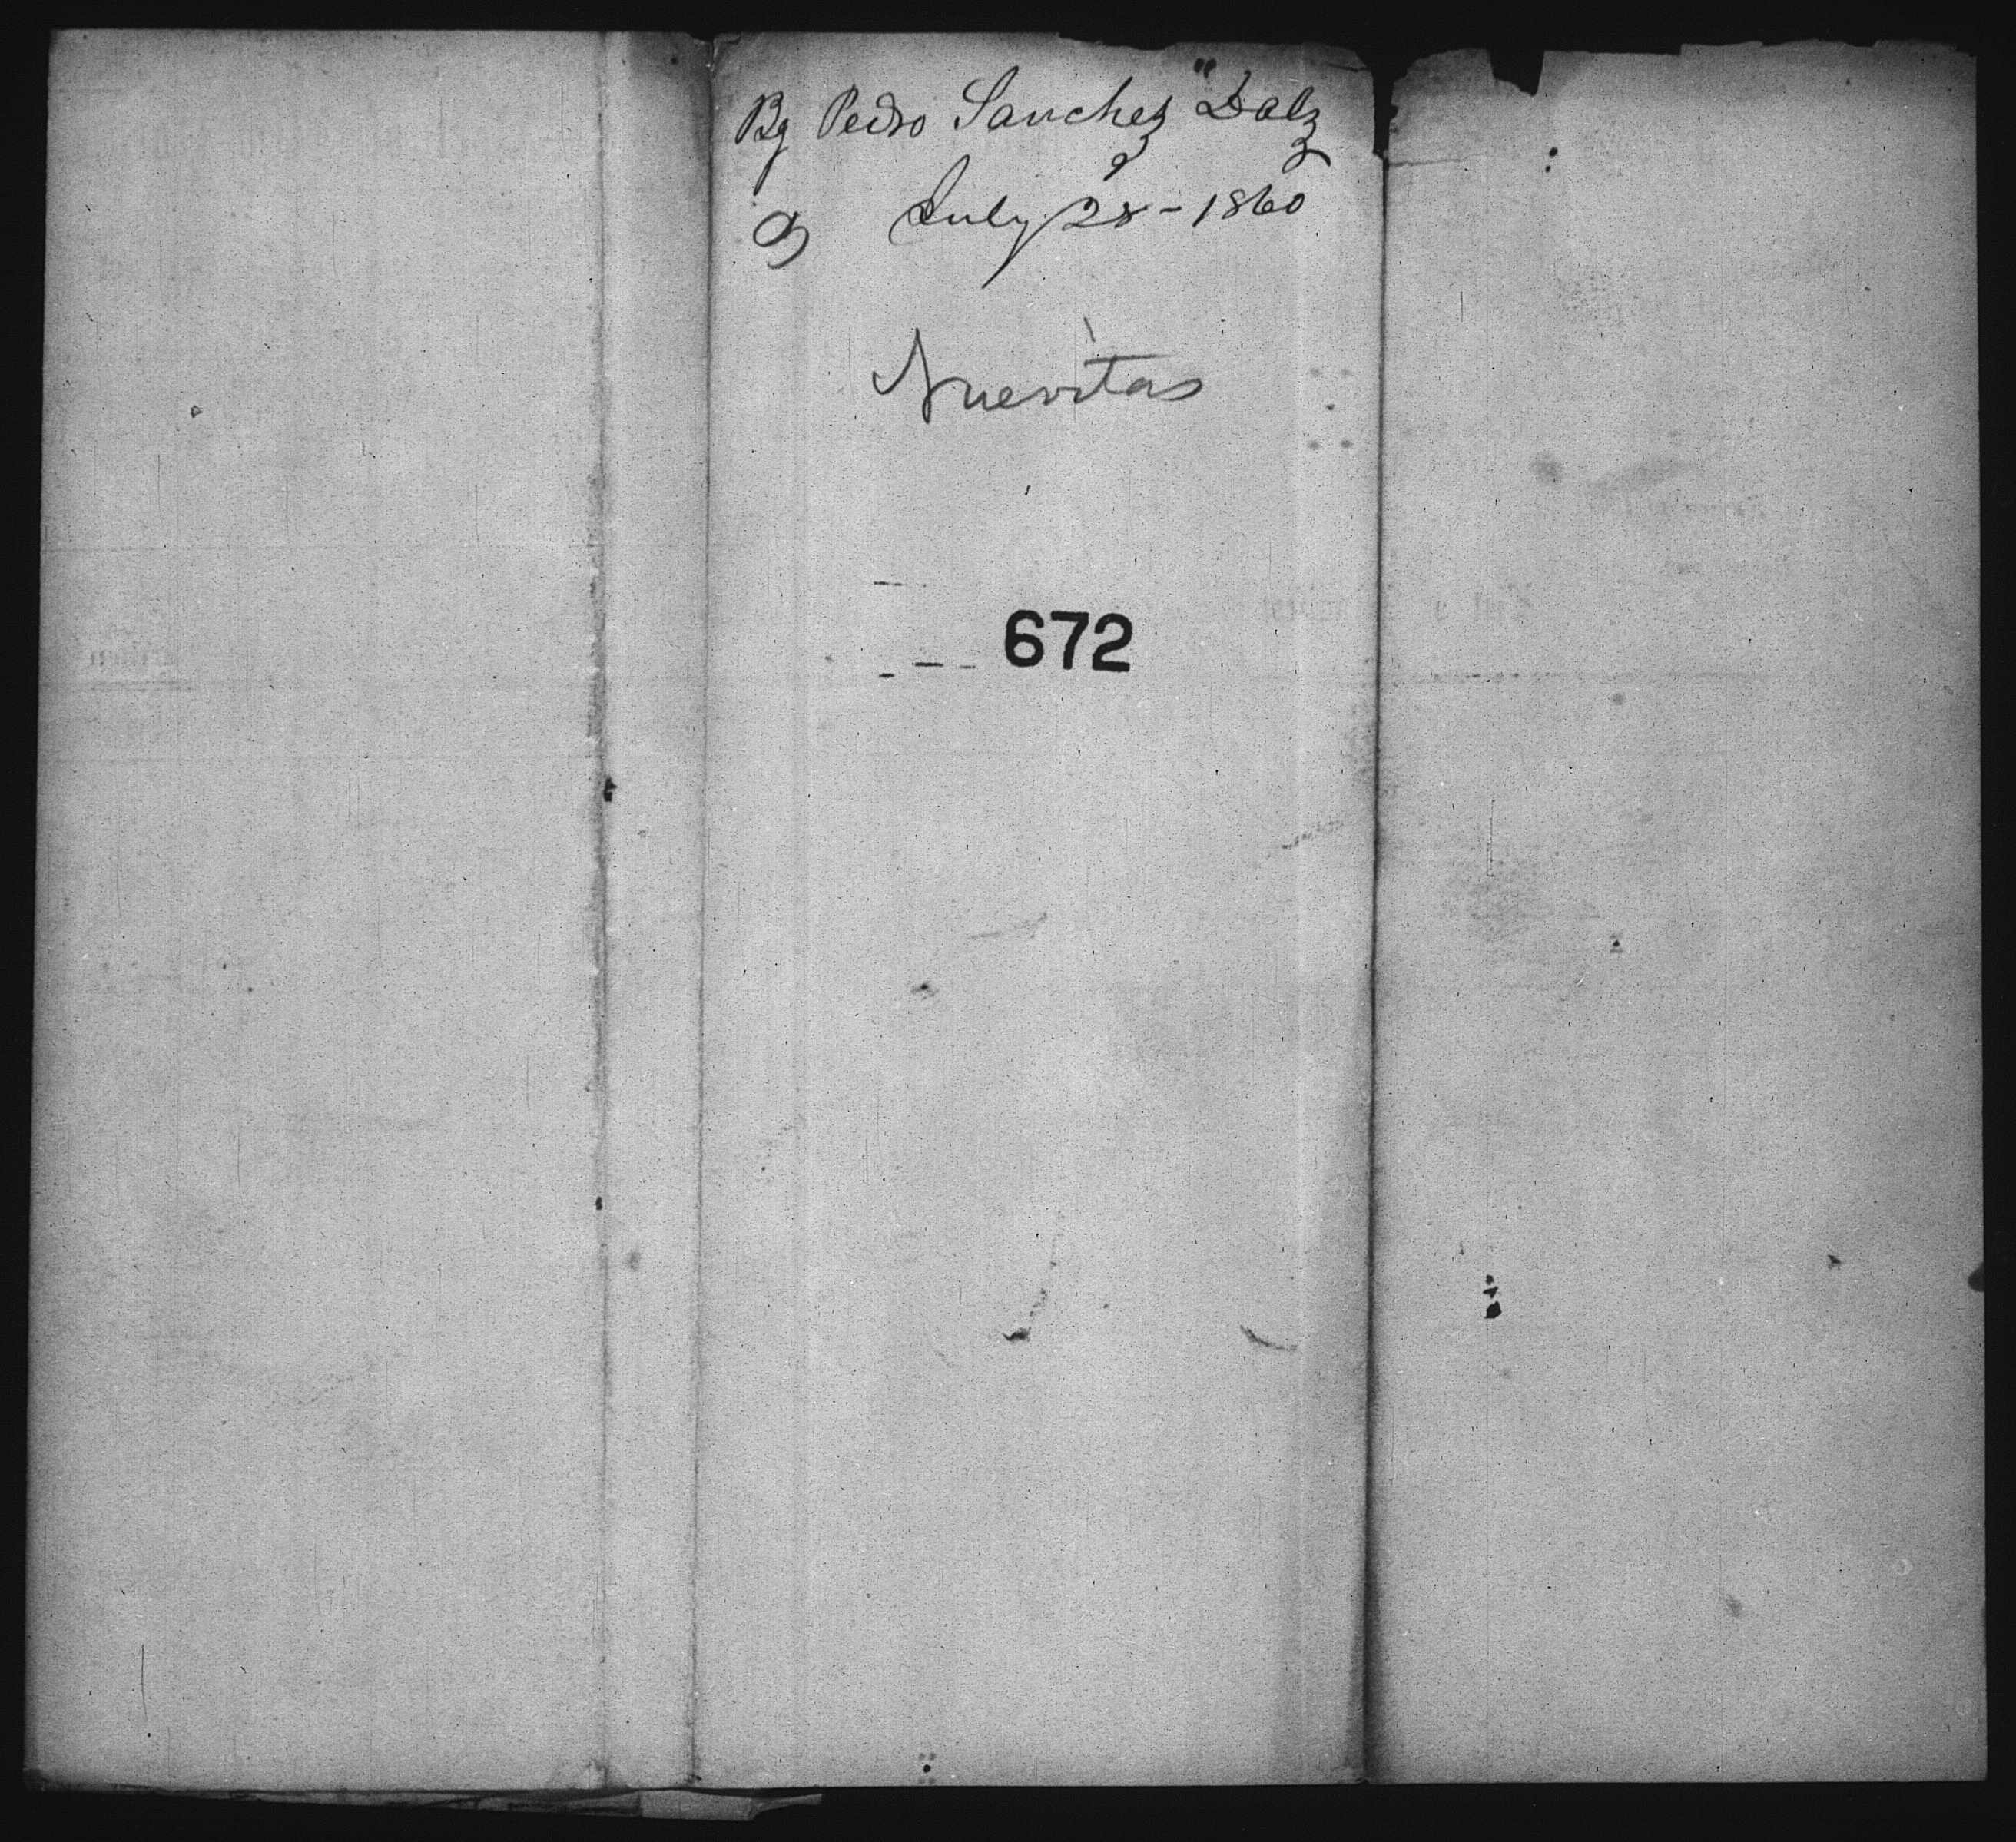 Bg Pedro Sanchez Dolz
July 28 - 1860
Nuevitas
672